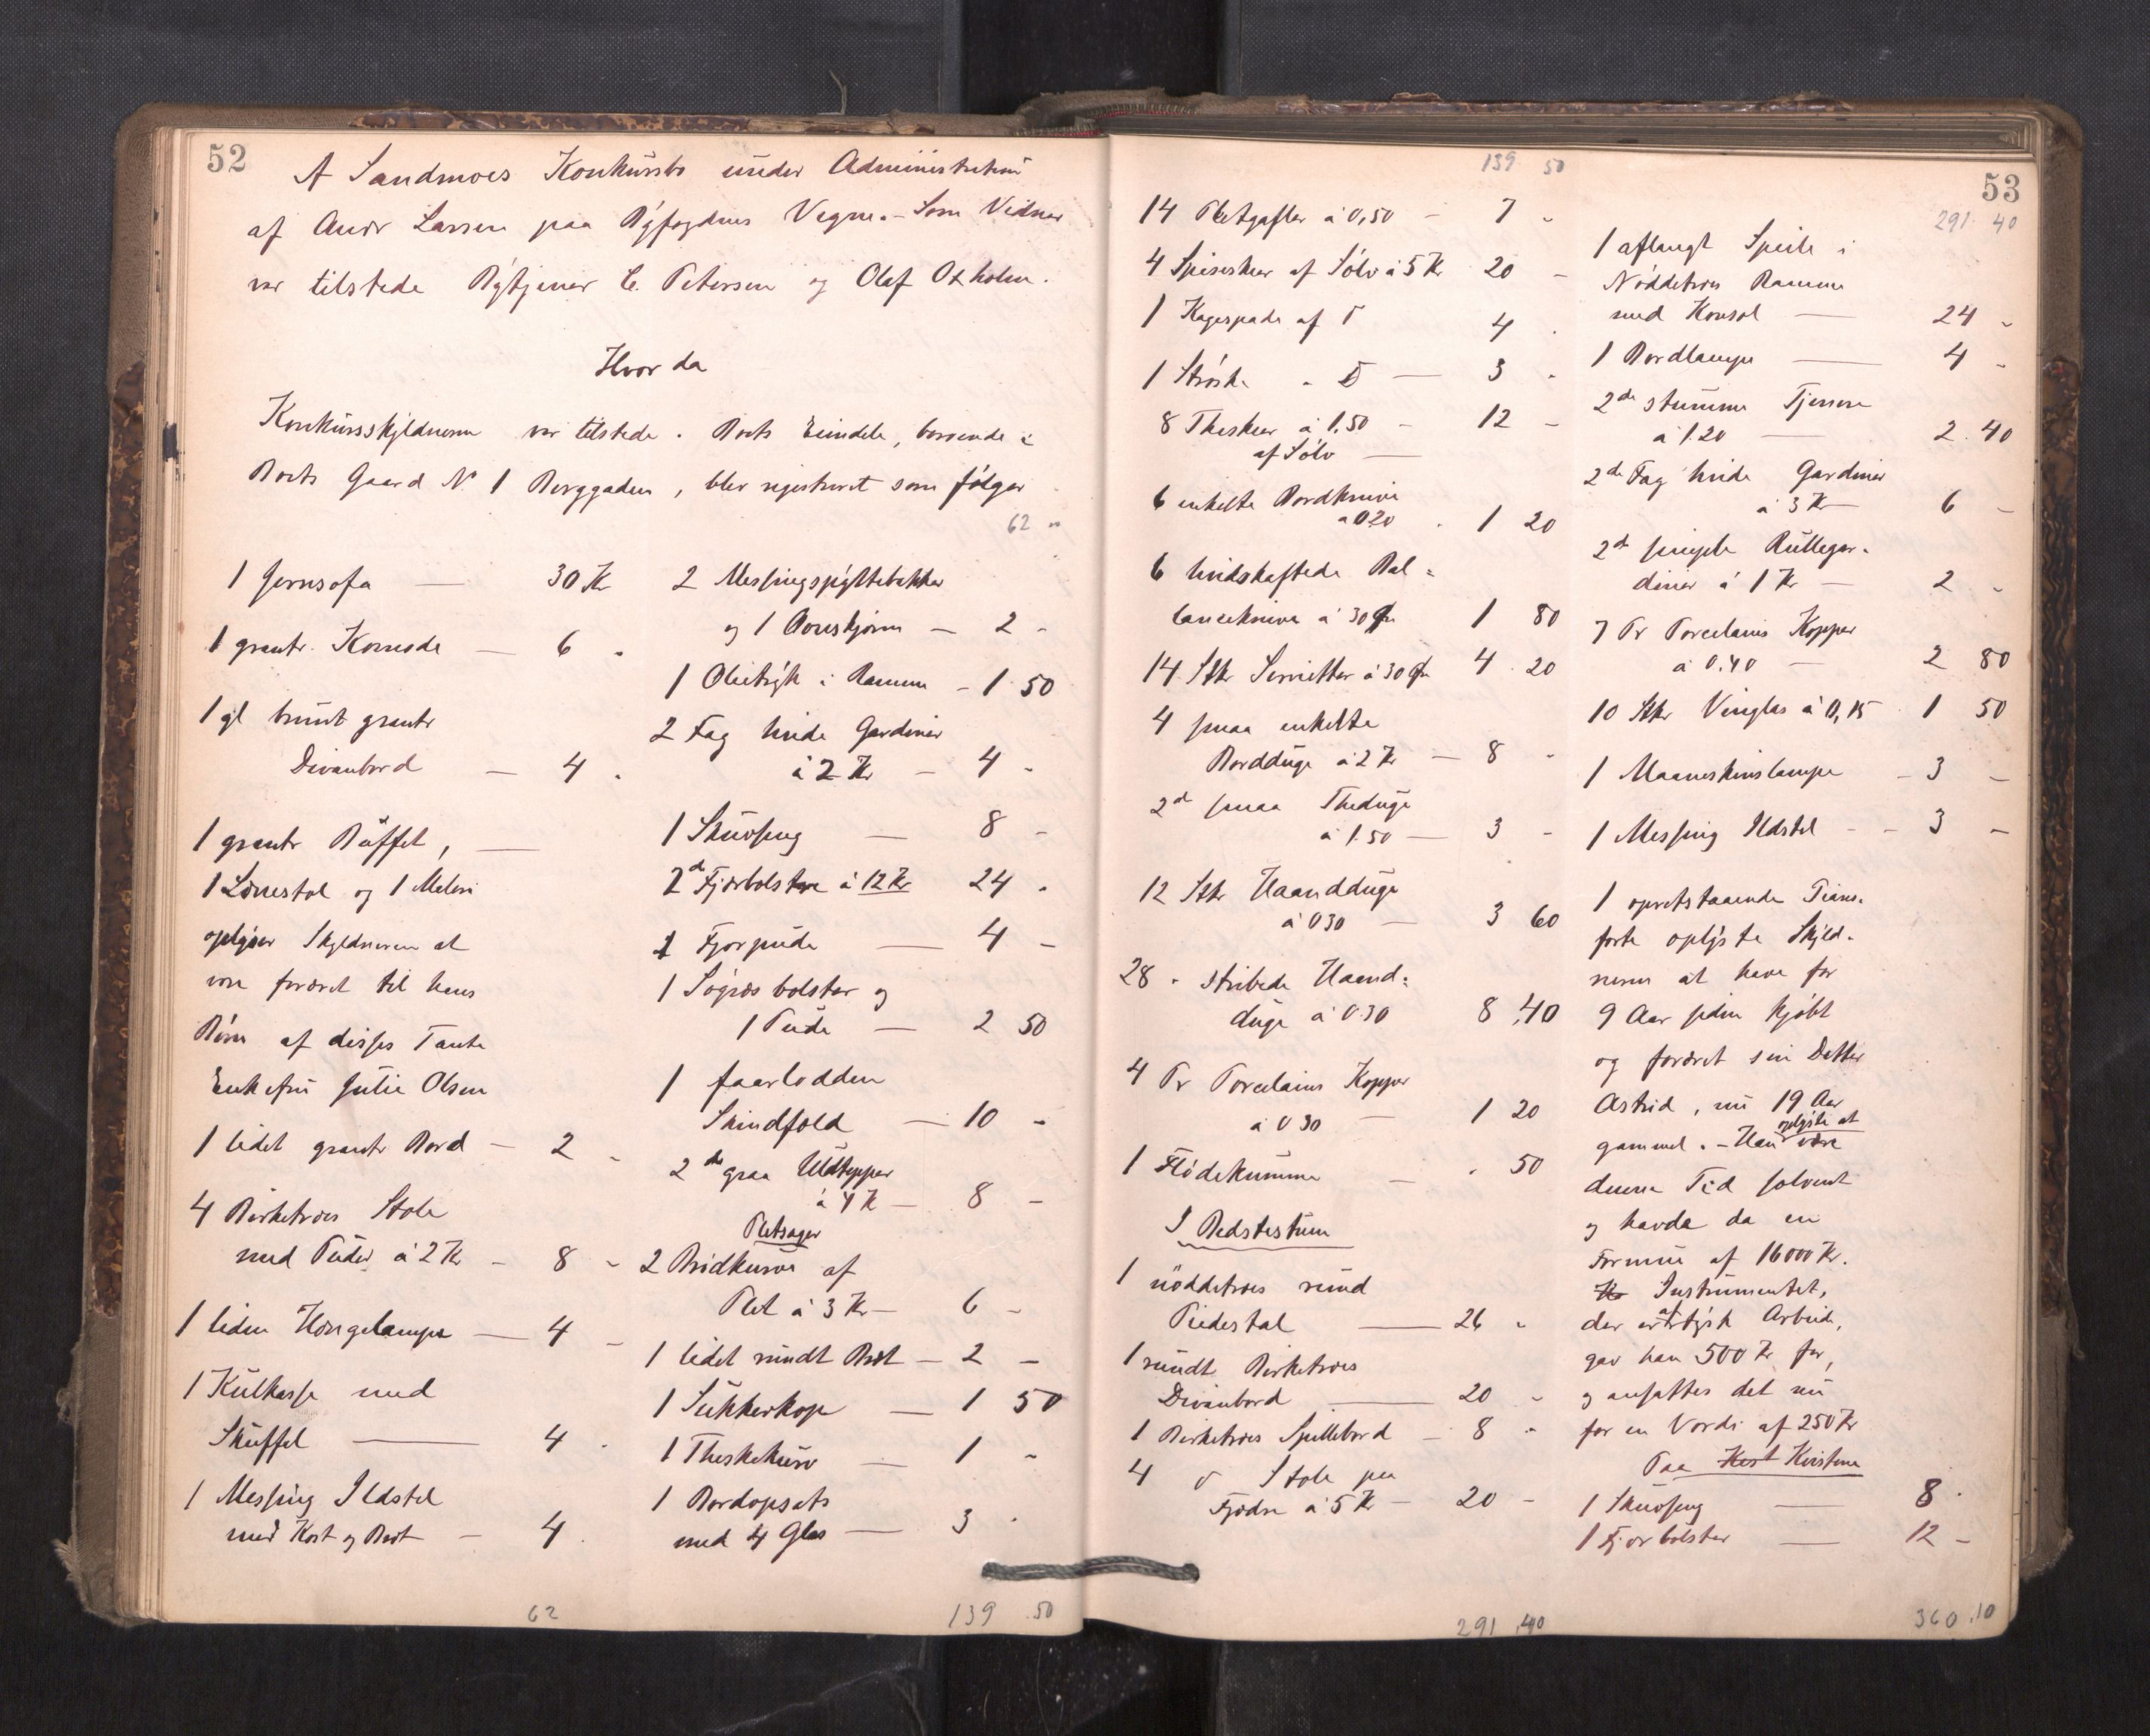 52
A Sandmoes Konkursbo under Administration
af Andr Larsen paa Byfogdens Vegne. – Som Vidner
var tilstede Bytjener C. Petersen og Olaf Oxholm.
Hvorda
Konkursskyldneren var tilstede. Boets Eiendele, beroende i
Boets Gaard N 1 Berggaden, blev registreret som følger
62 "
1 Jernsofa — 30 Kr
1 grantr. Komode — 6 "
1 gl brunt grantr
Divanbord — 4 "
1 grantr Büffet, —
1 Lænestol og 1 Maleri
oplyser Skyldneren at
være foræret til hans
Børn af disses Tante
Enkefru Julie Olsen
1 lidet grantr Bord — 2 "
4 Birketræes Stole
med Puder à 2 Kr — 8 "
1 liden Hængelampe — 4 –
1 Kulkasse med
Skuffel — 4 "
1 Messing Ildstel
med Kost og Bræt — 4 "
62
2 Messingspyttebakker
og 1 Ovnskjærm — 2 –
1 Olietryk i Ramme – 1 50
2 Fag hvide Gardiner
à 2 Kr — 4 –
1 Skuvseng — 8 –
2 d Fjærbolstre à 12 Kr 24 "
1 Fjærpude — 4 –
1 Søgræsbolster og
1 Pude — 2 50
1 faarlodden
Skindfeld — 10 –
2 de graa Uldtepper
à 4 K — 8 –
Pletsager
2 Brødkurve af
Plet à 3 Kr — 6 –
1 lidet rundt Bræt — 2 –
1 Sukkerkop — 1 50
1 Theskekurv — 1 –
1 Bordopsats
med 4 Glas — 3 "
139 .50
139 50
14 Pletgafler à 0,50 – 7 –
4 Spiseskeer af Sølv à 5 Kr 20 –
1 Kagespade af D 4 "
1 Strøske " D — 3 "
8 Theskeer à 1.50 – 12 –
af Sølv —
6 enkelte Bordknive
à 0.20 " 1 20
6 hvidskaftede Bal=
lanceknive à 30 Øre 1 80
14 Stkr Servietter à 30 Øre 4 . 20
4 smaa enkelte
Bordduge à 2 Kr — 8 –
2 d smaa Theduge
à 1.50 — 3 –
12 Stkr Haandduge
à 0 30 — 3 60
28 " stribede Haand=
duge à 0.30 8,40
4 Pr Porcelains Kopper
à 0 30 — 1 20
1 Flødekumme — " 50
I Bedstestuen
1 nöddetræes rund
Piedestal — 26 "
1 rundt Birketræes
Divanbord — 20 –
1 Birketræes Spillebord – 8 "
4 d Stole paa
Fjædre à 5 Kr — 20 –
291 .40
53
291 40
1 aflangt Speile i
Nöddetræes Ramme
med Konsol — 24 –
1 Bordlampe — 4 –
2 de stumme Tjenere
à 1.20 — 2.40
2 de Fag hvide Gardiner
à 3 Kr 6 –
2 de simple Rullegar=
diner à 1 Kr — 2 –
7 Pr Porcelains Kopper
à 0.40 — 2 80
10 Stkr Vinglas à 0,15 1 50
1 Maaneskinslampe – 3 –
1 Messing Ildstel – – 3 –
1 opretstaaende Piano=
forte oplyste Skyld=
neren at have for
9 Aar siden kjøbt
og foræret sin Datter
Astrid, nu 19 Aar
gammel. – Han oplyste at være
denne Tid solvent
og havde da en
Formue af 16000 Kr.
Ha Instrumentet,
der er af tysk Arbeide,
gav han 500 Kr for,
og ansattes det nu
for en Værdi af 250 Kr
Paa Kvist Kvisten
1 Skuvseng — 8 "
1 Fjærbolster — 12 –
360.10